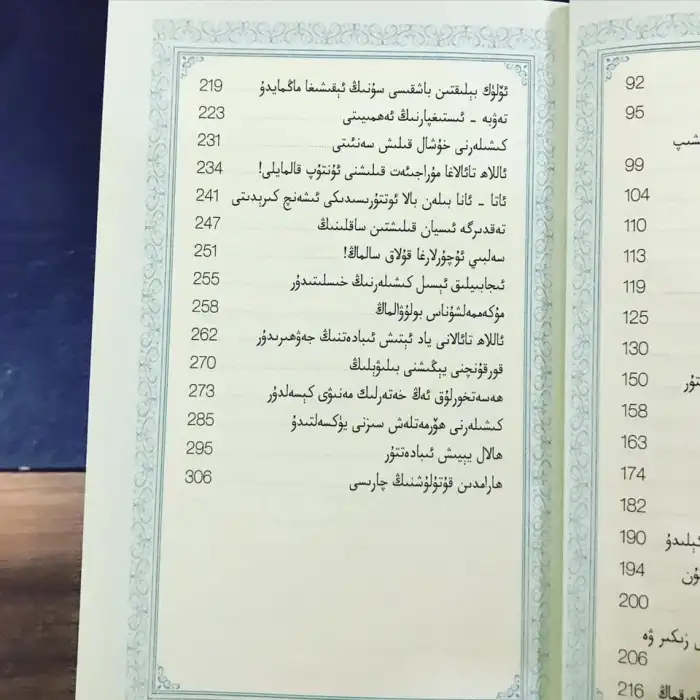 ئۆلۈك بېلىقتىن باشقىسى سۇنىڭ ئېقىشىغا ماڭمايدۇ 219
تەۋبە - ئىستىغپارنىڭ ئەھمىيىتى 223
كىشىلەرنى خۇشال قىلىش سەنئىتى 231
ئاللاھ تائالاغا مۇراجىئەت قىلىشنى ئۇنتۇپ قالمايلى! 234
ئاتا - ئانا بىلەن بالا ئوتتۇرىسىدىكى ئىشەنچ كىرىدىتى 241
تەقدىرگە ئىسيان قىلىشتىن ساقلىنىڭ 247
سەلبىي ئۇچۇرلارغا قۇلاق سالماڭ! 251
ئىجابىيلىق ئېسىل كىشىلەرنىڭ خىسلىتىدۇر 255
مۇكەممەلشۇناس بولۇۋالماڭ 258
ئاللاھ تائالانى ياد ئېتىش ئىبادەتنىڭ جەۋھىرىدۇر 262
قورقۇنچنى يېڭىشنى بىلىۋېلىڭ 270
ھەسەتخورلۇق ئەڭ خەتەرلىك مەنىۋى كېسەلدۇر 273
كىشىلەرنى ھۆرمەتلەش سىزنى يۈكسەلتىدۇ 285
ھالال يېيىش ئىبادەتتۇر 295
ھارامدىن قۇتۇلۇشنىڭ چارىسى 306
92
95
99
104
110
113
119
125
130
150
158
163
174
182
190
194
200
زىكىر ۋە
206
216